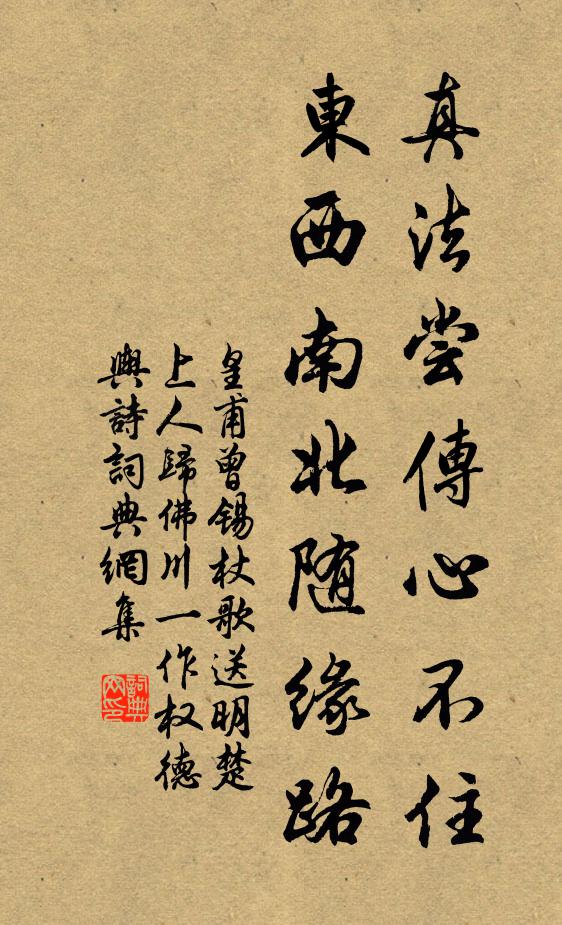 真法尝傳心不住
東西南北随緣路
皇甫曾錫杖歌送明楚
上人歸佛川一作权德
輿詩詞典網集
詞典